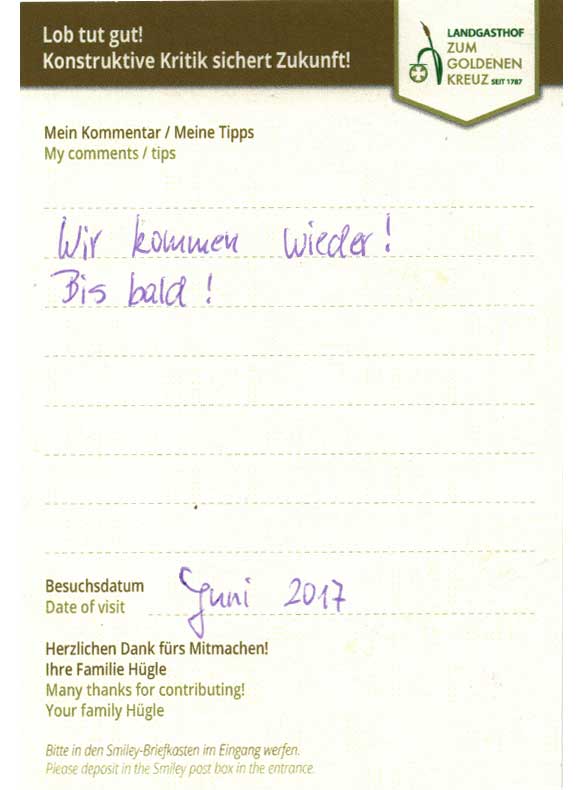 Lob tut gut!
Konstruktive Kritik sichert Zukunft!
LANDGASTHOF
ZUM
GOLDENEN
KREUZ SEIT 1787
Mein Kommentar / Meine Tipps
My comments / tips
Wir kommen wieder!
Bis bald!
Besuchsdatum
Date of visit
Juni 2017
Herzlichen Dank fürs Mitmachen!
Ihre Familie Hügle
Many thanks for contributing!
Your family Hügle
Bitte in den Smiley-Briefkasten im Eingang werfen.
Please deposit in the Smiley post box in the entrance.